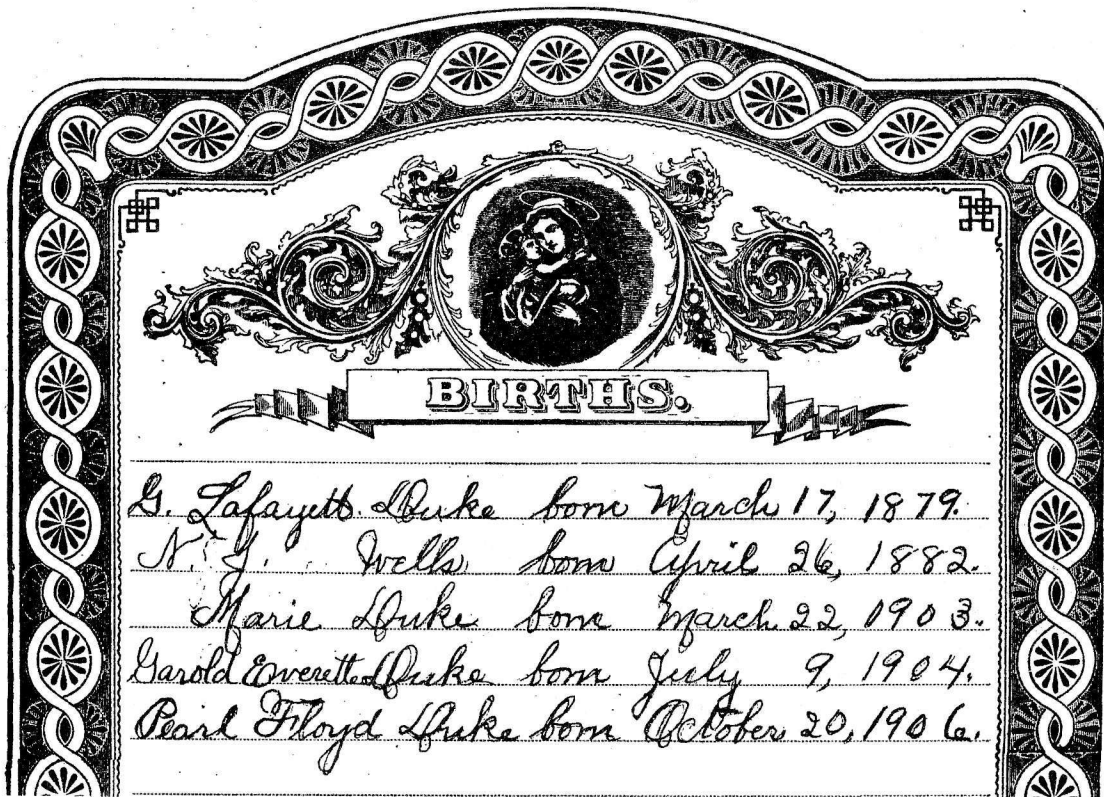 BIRTHS.
G. Lafayett Duke born March 17, 1879.
N. J. Wells born April 26, 1882.
Marie Duke born March 22, 1903.
Garold Everette Duke born July 9, 1904.
Pearl Floyd Duke born October 20, 1906.